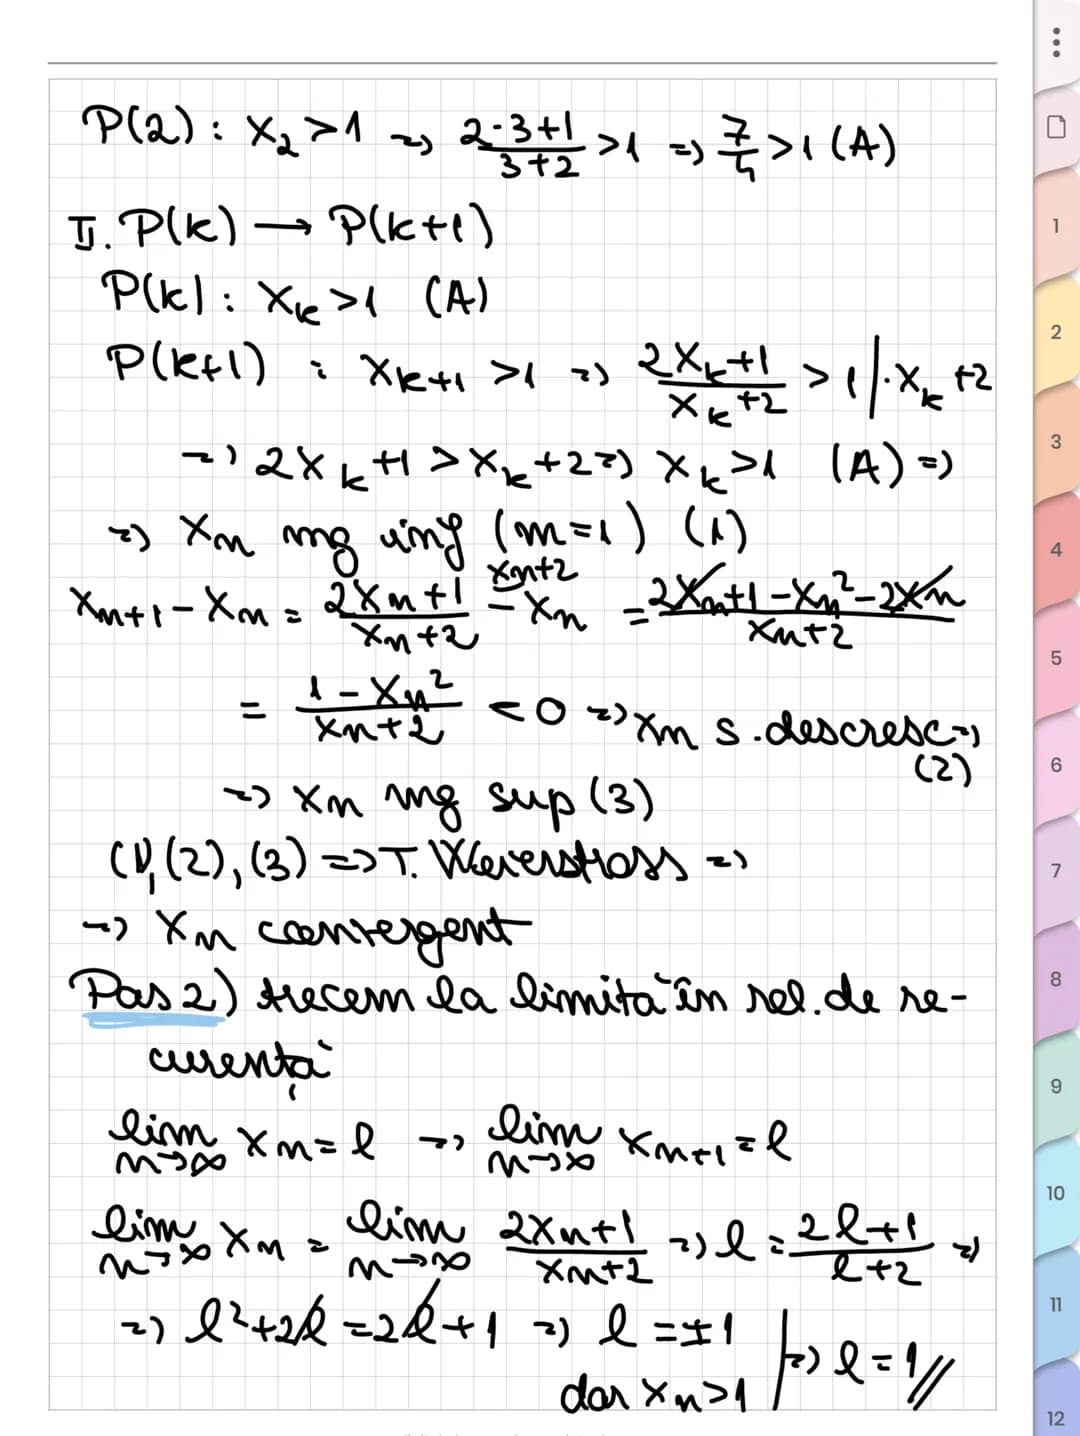 P(2): x₂ > 1 => (2·3+1)/(3+2) > 1 => 7/5 > 1 (A)
II. P(k) → P(k+1)
P(k): xₖ > 1 (A)
P(k+1) : xₖ₊₁ > 1 => (2xₖ+1)/(xₖ+2) > 1 | · xₖ+2
=> 2xₖ+1 > xₖ+2 => xₖ > 1 (A) =>
=> xₙ mg inf (m=1) (1)
xₙ₊₁ - xₙ = (2xₙ+1)/(xₙ+2) - ˣⁿ⁺²⁾xₙ = (2xₙ+1-xₙ²-2xₙ)/(xₙ+2)
= (1-xₙ²)/(xₙ+2) < 0 => xₙ s.descresc =>
(2)
=> xₙ mg sup (3)
(1), (2), (3) => T. Weierstrass =>
=> xₙ convergent
Pas 2) trecem la limită în rel. de re-
curență
lim n→∞ xₙ = l => lim n→∞ xₙ₊₁ = l
lim n→∞ xₙ = lim n→∞ (2xₙ+1)/(xₙ+2) => l = (2l+1)/(l+2) =>
=> l²+2l = 2l+1 => l = ±1
dar xₙ > 1 | => l = 1 //
1
2
3
4
5
6
7
8
9
10
11
12